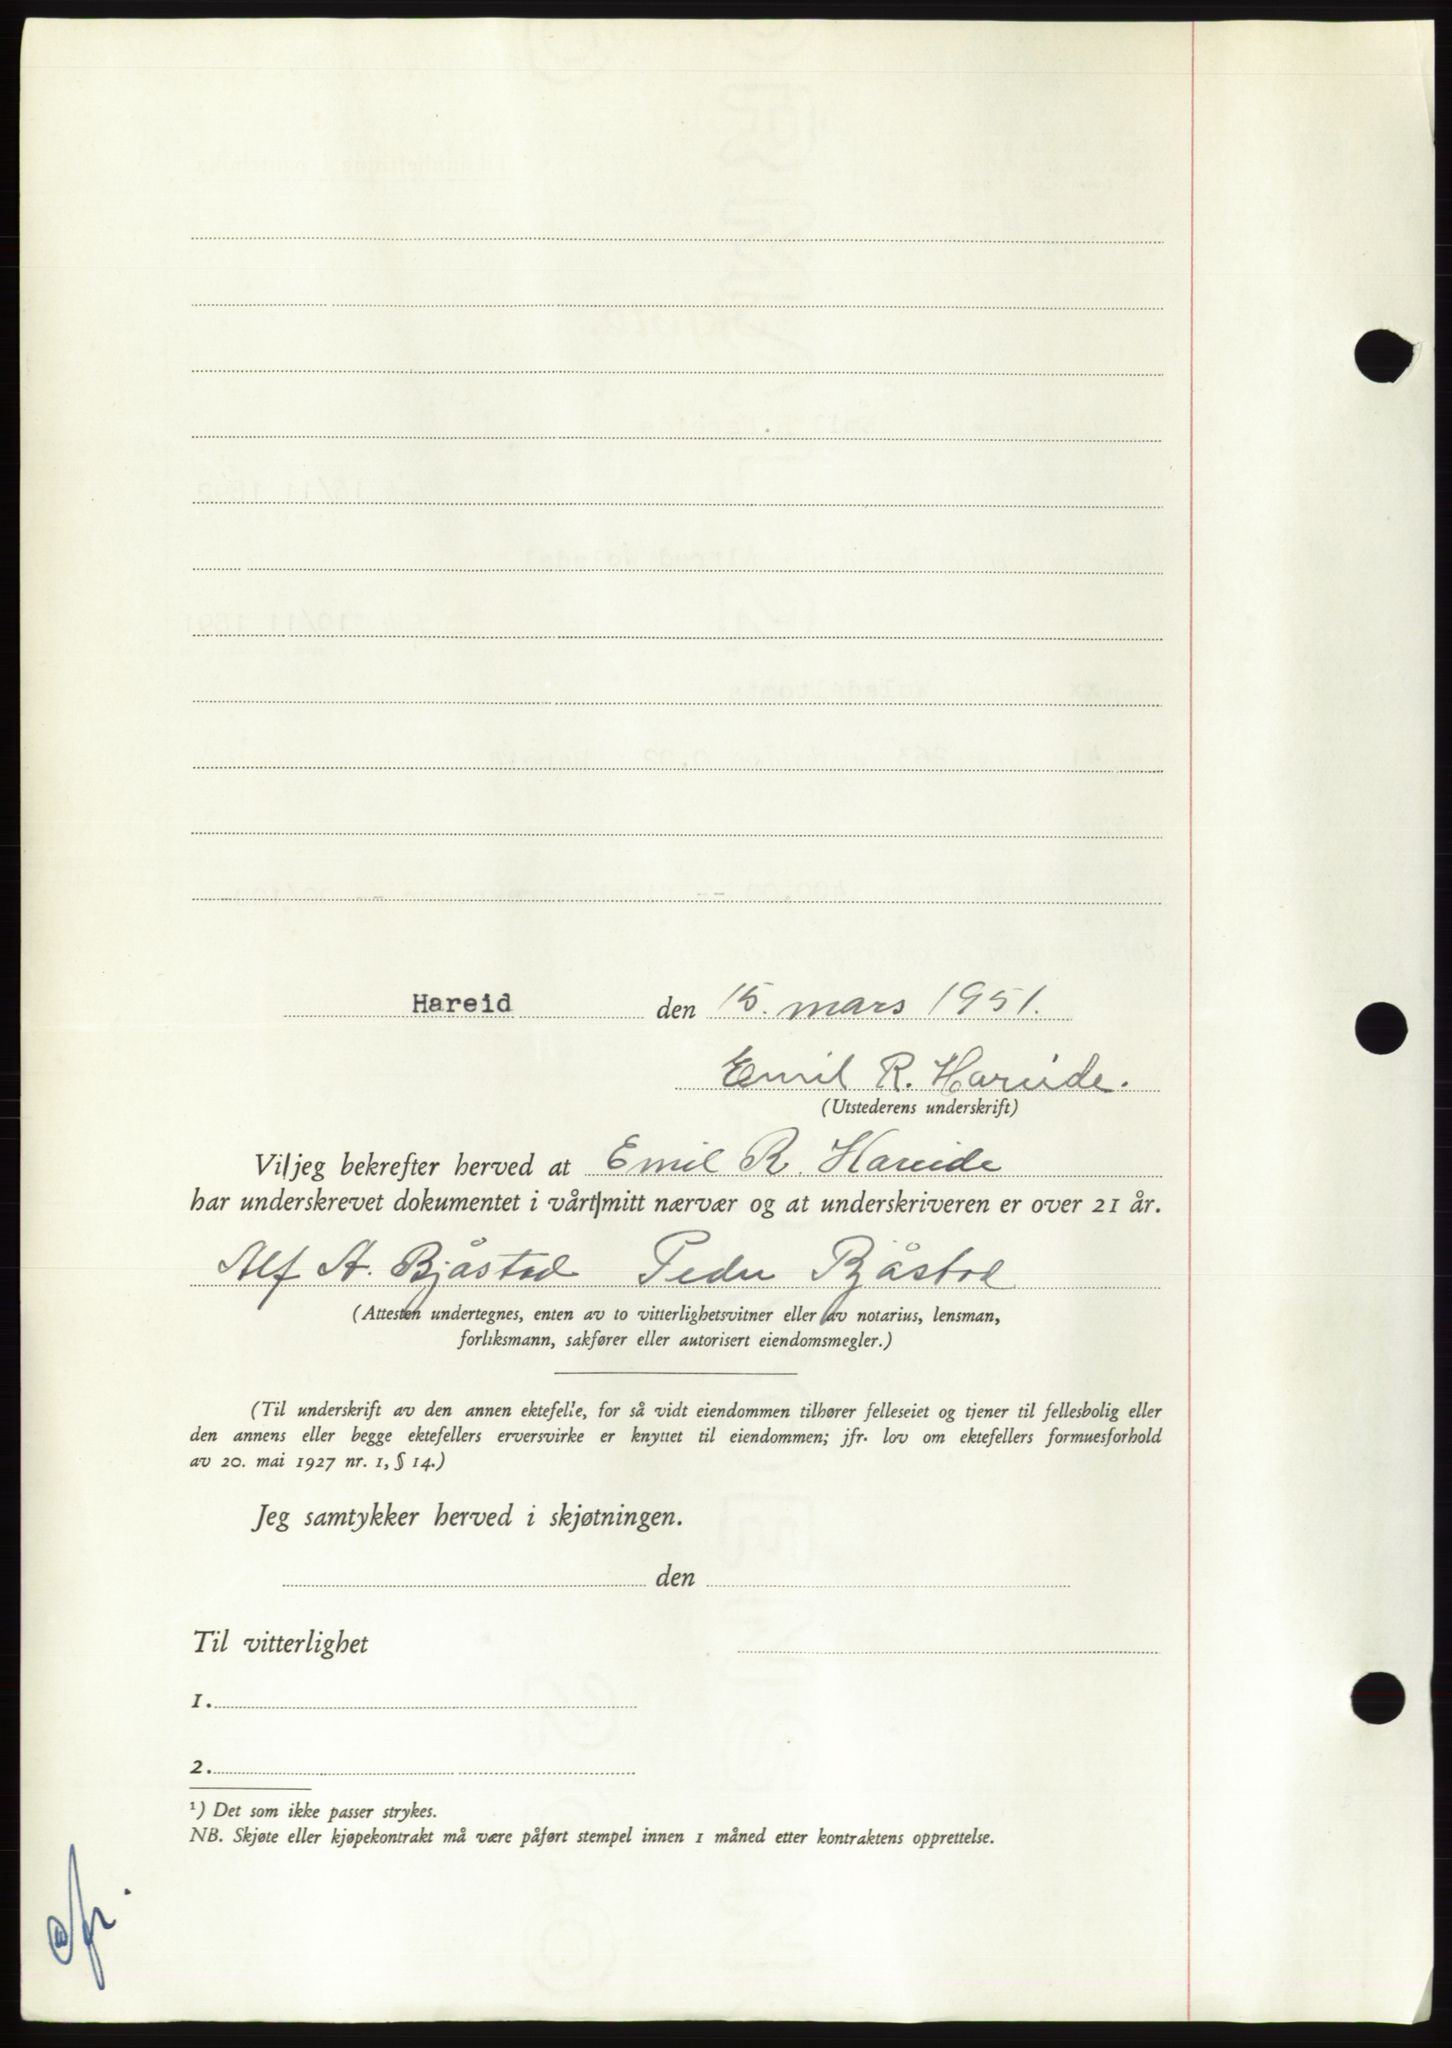 Hareid den 15. mars 1951.
Emil R. Hareide.
(Utstederens underskrift)
Vi/jeg bekrefter herved at Emil R. Hareide
har underskrevet dokumentet i vårt/mitt nærvær og at underskriveren er over 21 år.
Alf A. Bjåstad Peder Bjåstad
(Attesten undertegnes, enten av to vitterlighetsvitner eller av notarius, lensman,
forliksmann, sakfører eller autorisert eiendomsmegler.)
(Til underskrift av den annen ektefelle, for så vidt eiendommen tilhører felleseiet og tjener til fellesbolig eller
den annens eller begge ektefellers erversvirke er knyttet til eiendommen; jfr. lov om ektefellers formuesforhold
av 20. mai 1927 nr. 1, § 14.)
Jeg samtykker herved i skjøtningen.
den
Til vitterlighet
1.
2.
¹) Det som ikke passer strykes.
NB. Skjøte eller kjøpekontrakt må være påført stempel innen 1 måned etter kontraktens opprettelse.